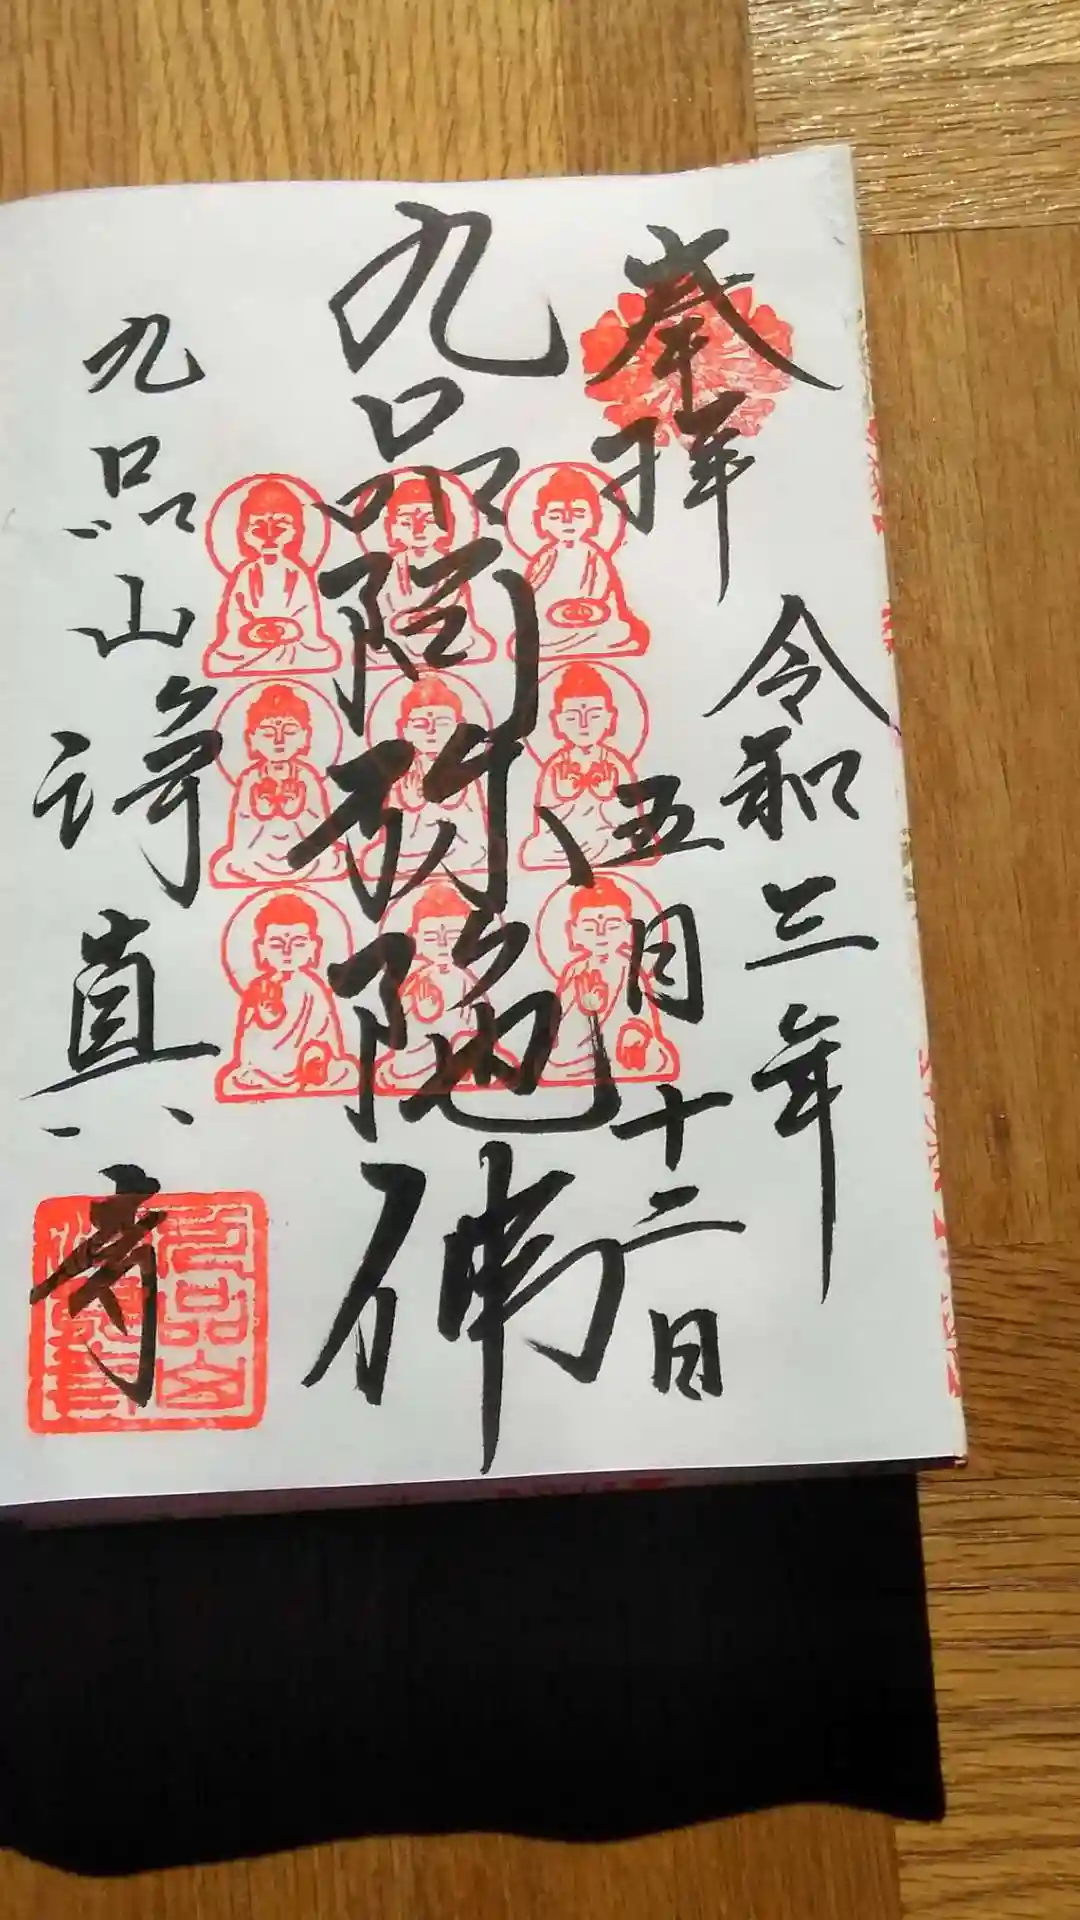 奉拝
令和三年
五月十二日
九品阿弥陀佛
九品山浄真寺